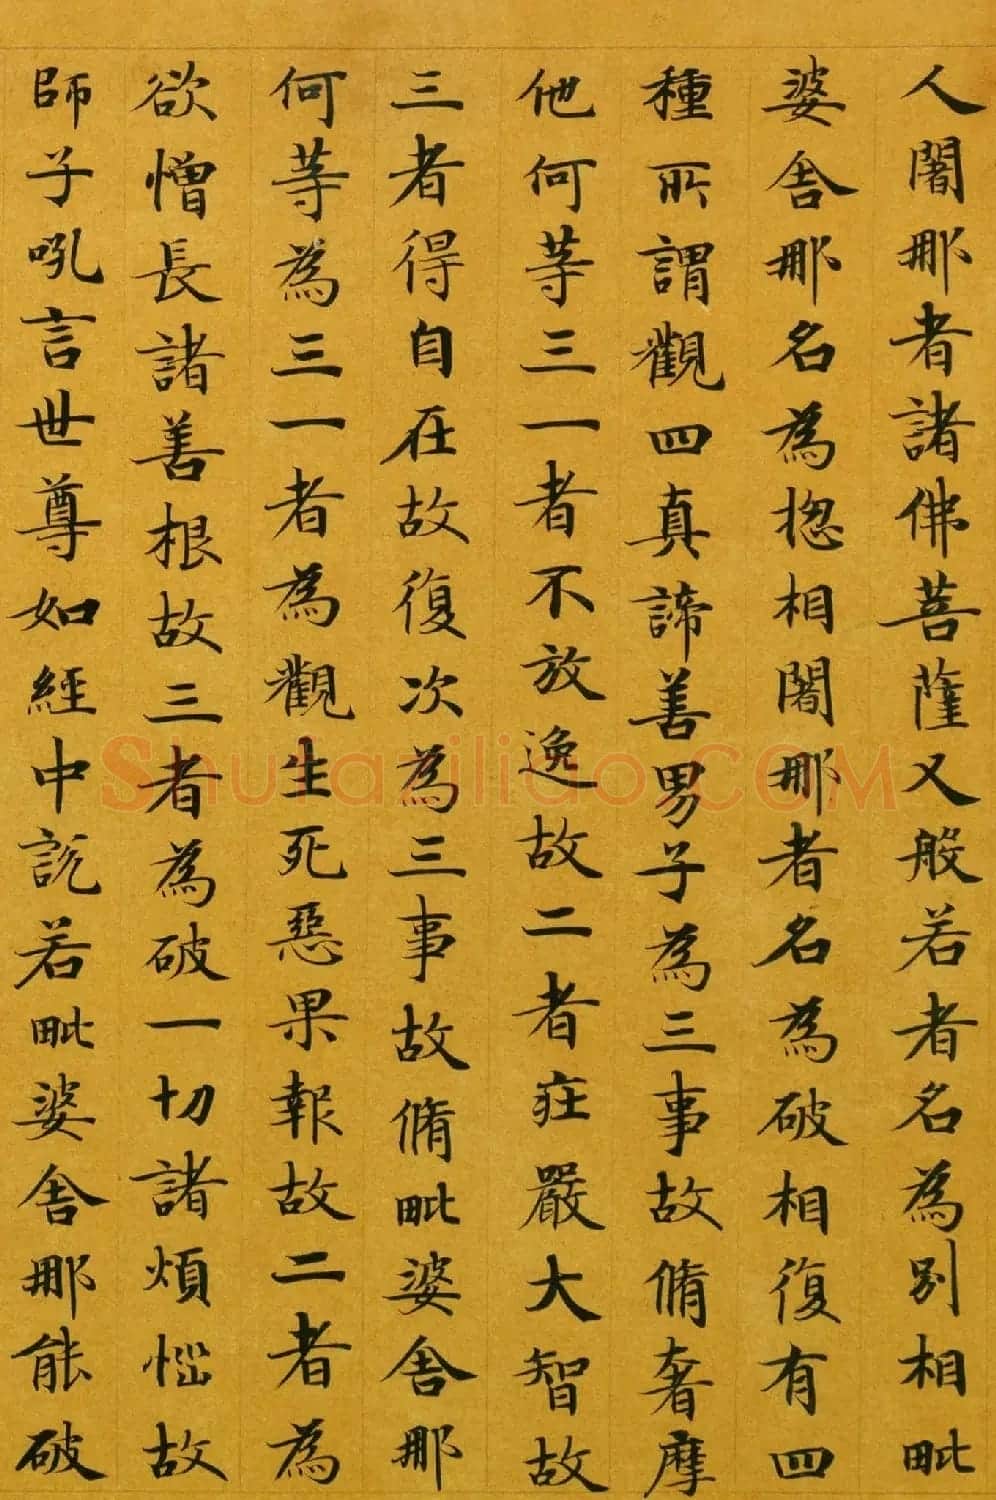 人闍那者諸佛菩薩又般若者名為別相毗
婆舍那名為揔相闍那者名為破相復有四
種所謂觀四真諦善男子為三事故脩奢摩
他何等三一者不放逸故二者庄嚴大智故
三者得自在故復次為三事故脩毗婆舍那
何等為三一者為觀生死惡果報故二者為
欲憎長諸善根故三者為破一切諸煩惱故
師子吼言世尊如經中說若毗婆舍那能破
Shufaziliao.COM